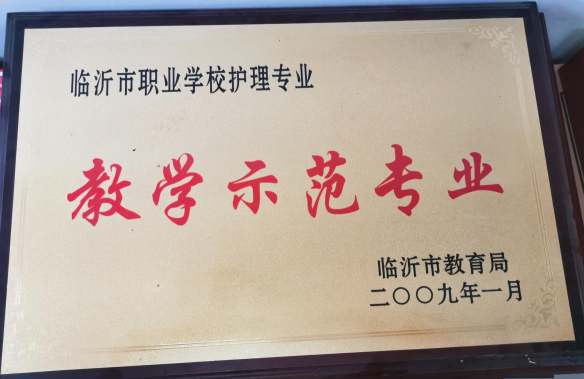 临沂市职业学校护理专业
教学示范专业
临沂市教育局
二〇〇九年一月